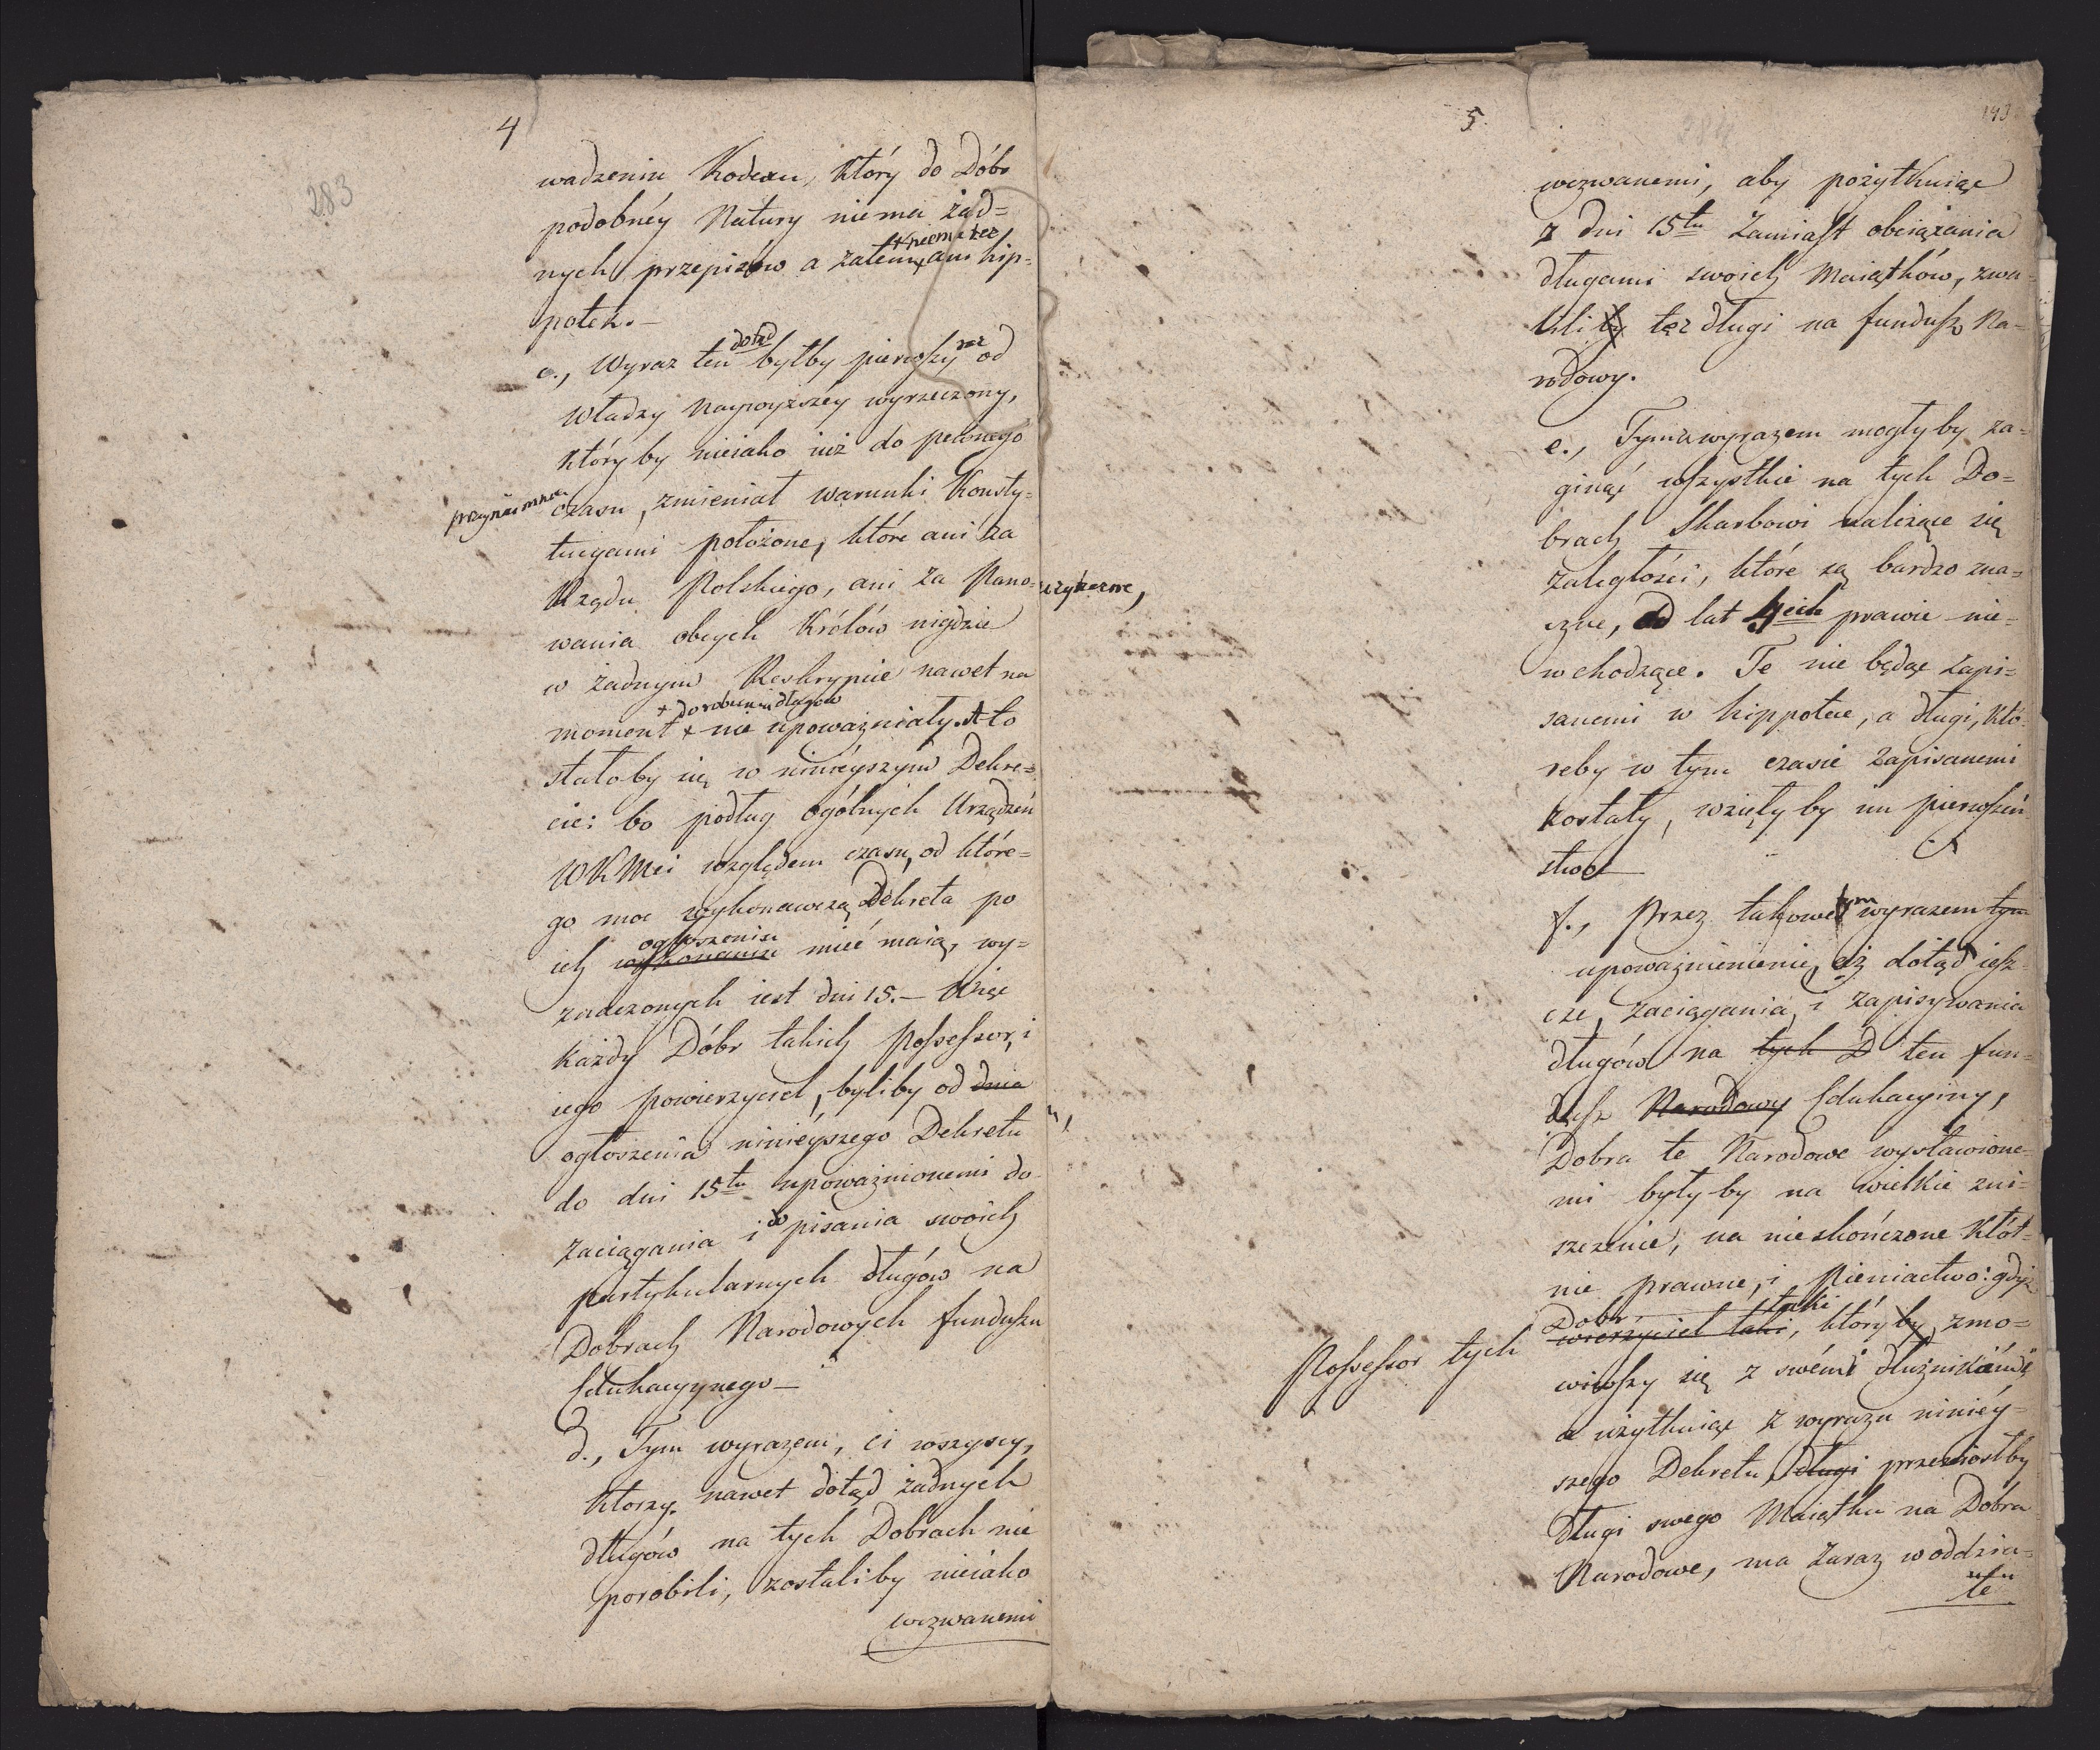 4
283
wadzeniu Kodexu, który do Dóbr
podobnéy Natury niema żad=
nych przepisów a zatem + niema też ani hip=
potek. —
c., Wyraz ten dotąd byłby pierwszy raz od
władzy Naywyższéy wyrzeczony,
któryby nieiako iuż do pewnego
przynaimniéy czasu, zmieniał warunki Konsty=
tucyami położone, które ani za
Rządu Polskiego, ani za Pano=
wania obcych Królów nigdzie
w żadnym Reskrypcie nawet na
moment + do robienia długów nie upoważniały. A to
stałoby się w ninieyszym Dekre=
cie: bo podług ogólnych Urządzeń
WKMci względem czasu, od które=
go moc wykonawczą Dekreta po
ich wykonaniu ogłoszeniu mieć maią, wy=
znaczonych iest dni 15. — Więc
każdy Dóbr takich Possessor, i
iego powierzyciel, byliby od dnia
ogłoszenia ninieyszego Dekretu
do dni 15tu upoważnionemi do
zaciągania i do pisania swoich
partykularnych długów na
Dobrach Narodowych funduszu
Edukacyynego —
d., Tym wyrazem, ci wszyscy,
którzy nawet dotąd żadnych
długów na tych Dobrach nie
porobili, zostaliby nieiako
wezwanemi
5.
143
wezwanemi, aby pożytkuiąc
z dni 15tu Zamiast obciążania
długami swoich Maiątków, zwa=
lili by też długi na fundusz Na=
rodowy.
e., Tym wyrazem mogłyby za=
ginąć wszystkie na tych Do=
brach Skarbowi należące się
zaległości, które są bardzo zna=
czne, od lat 4ech prawie nie=
wchodzące. Te nie będąc zapi=
sanemi w hippotece, a długi, któ=
reby w tym czasie zapisanemi
zostały, wzięłyby im pierwszeń
stwo
f., Przez takowe tym wyrazem tym
upoważnienienie, iż dotąd iesz=
cze, zaciągania, i zapisywania
długów na tych D ten fun=
dusz Narodowy Edukacyiny,
Dobra te Narodowe wystawione=
mi byłyby na wielkie zni=
szczenie, na nieskończone Kłót=
nie prawne, i Pieniactwo: gdyż
Possessor tych Dobr wierzyciel taki taki, który by, zmo=
wiwszy się z swémi dłużnikámi
a użytkuiąc z wyrazu niniéy=
szego Dekretu, długi przeniósłby
długi swego Maiątku na Dobra
Narodowe, ma zaraz w oddzia=
le